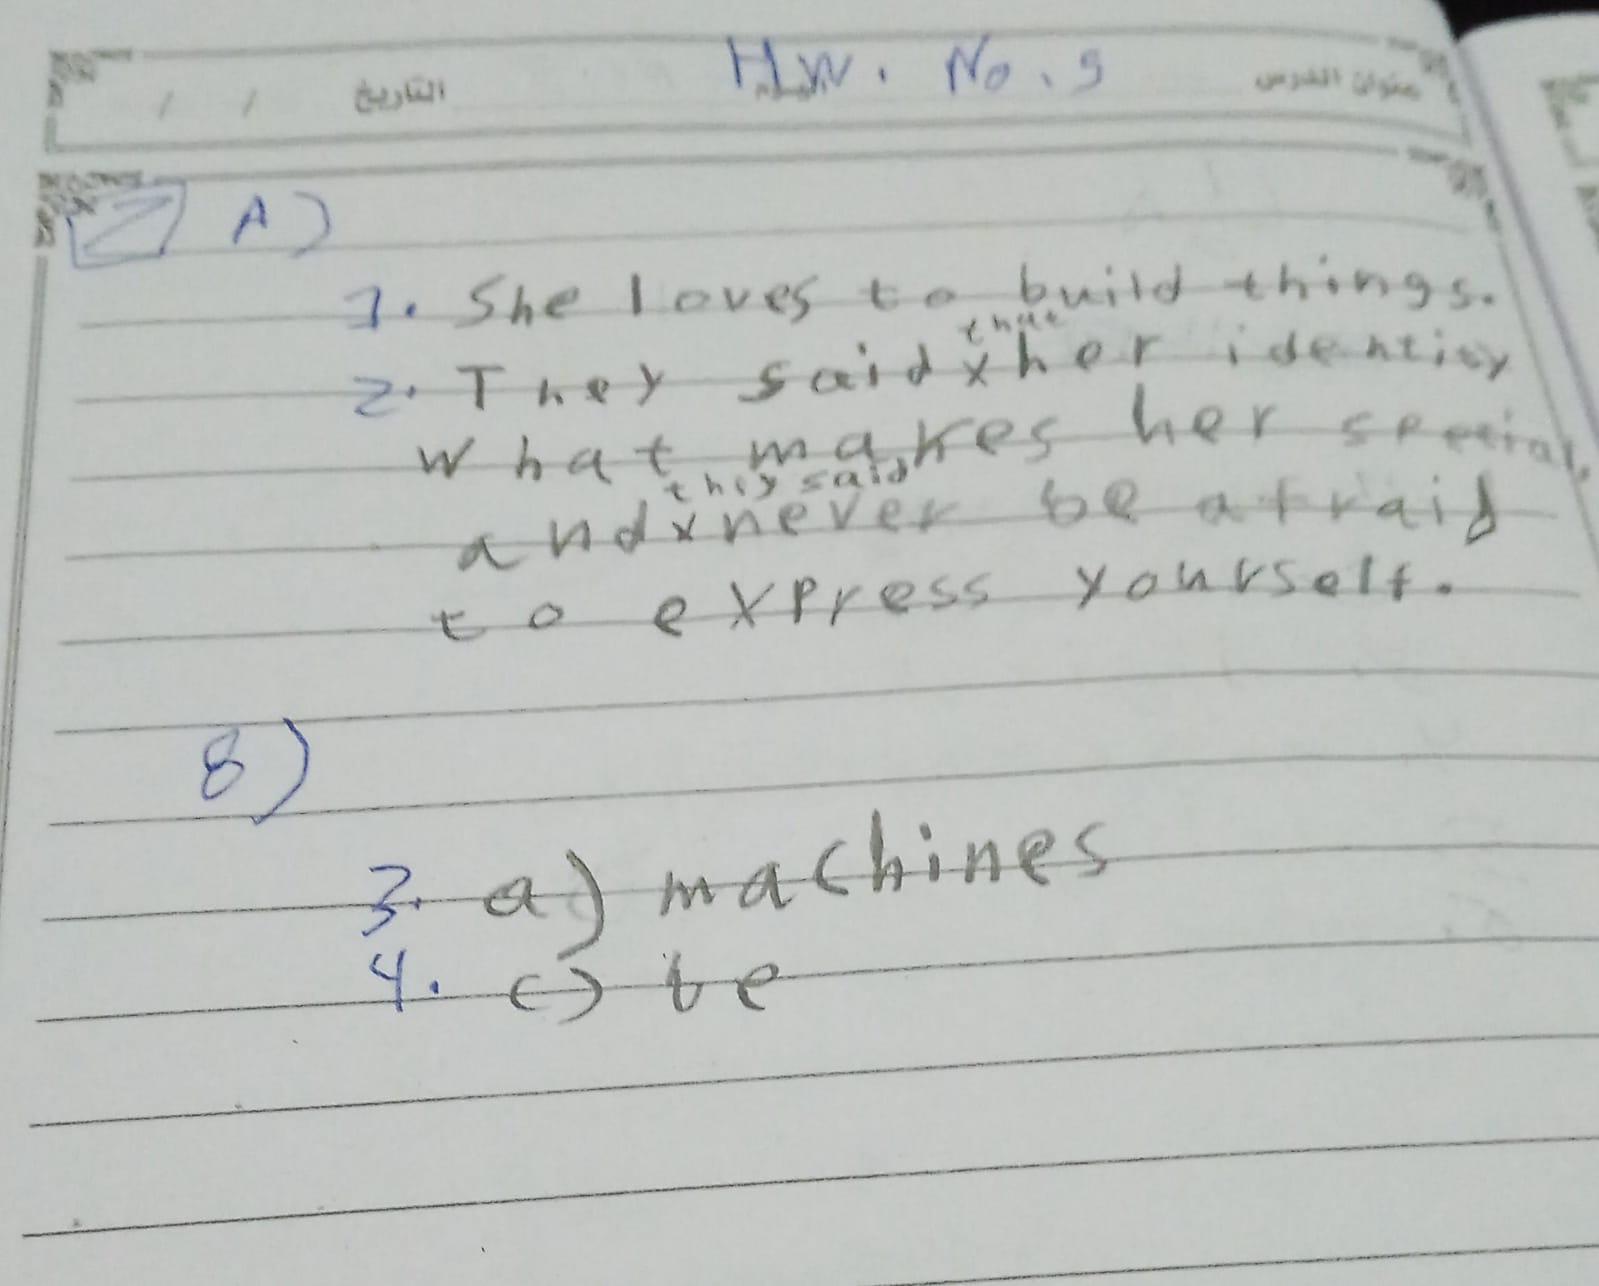 عنوان الدرس H.W. No. 9 التاريخ / /
A)
1. She loves to build things.
2. They said that her identity
what makes her special,
and they said never be afraid
to express yourself.
B)
3. a) machines
4. c) be